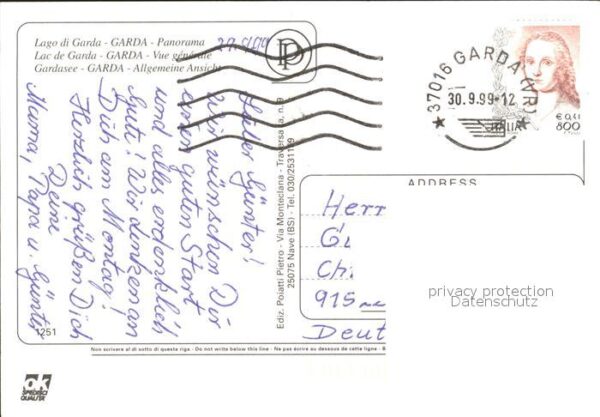 Lago di Garda - GARDA - Panorama
Lac de Garda - GARDA - Vue générale
Gardasee - GARDA - Allgemeine Ansicht
29.9.99
PP
37016 GARDA (VR)
30.9.99-12
ITALIA
€ 0,41
800
Lieber Günter!
Wir wünschen Dir
einen guten Start
und alles erdenklich
Gute! Wir denken an
Dich am Montag!
Herzlich grüßen Dich
Deine
Mama, Papa u. Günter
Ediz. Poiatti Pietro - Via Monteclana - Traversa
25075 Nave (BS) - Tel. 030/2531119
ADDRESS
Herr
Gü
Ch
915
Deut
privacy protection
Datenschutz
1251
Non scrivere al di sotto di questa riga - Do not write below this line - Ne pas écrire au dessous de cette ligne
ok
SPEDISCI
QUALITÀ